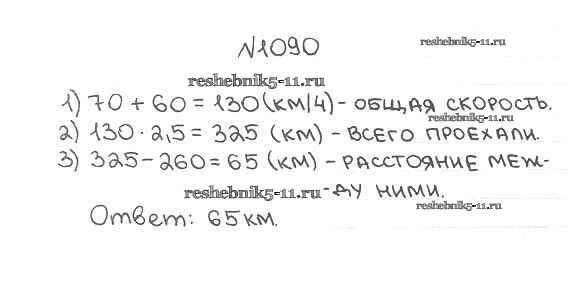 N1090
reshebnik5-11.ru
reshebnik5-11.ru
1) 70 + 60 = 130 (км/ч) - общая скорость.
reshebnik5-11.ru
2) 130 · 2,5 = 325 (км) - всего проехали.
3) 325 - 260 = 65 (км) - расстояние меж-
reshebnik5-11.ru
ду ними.
reshebnik5-11.ru
Ответ: 65 км.